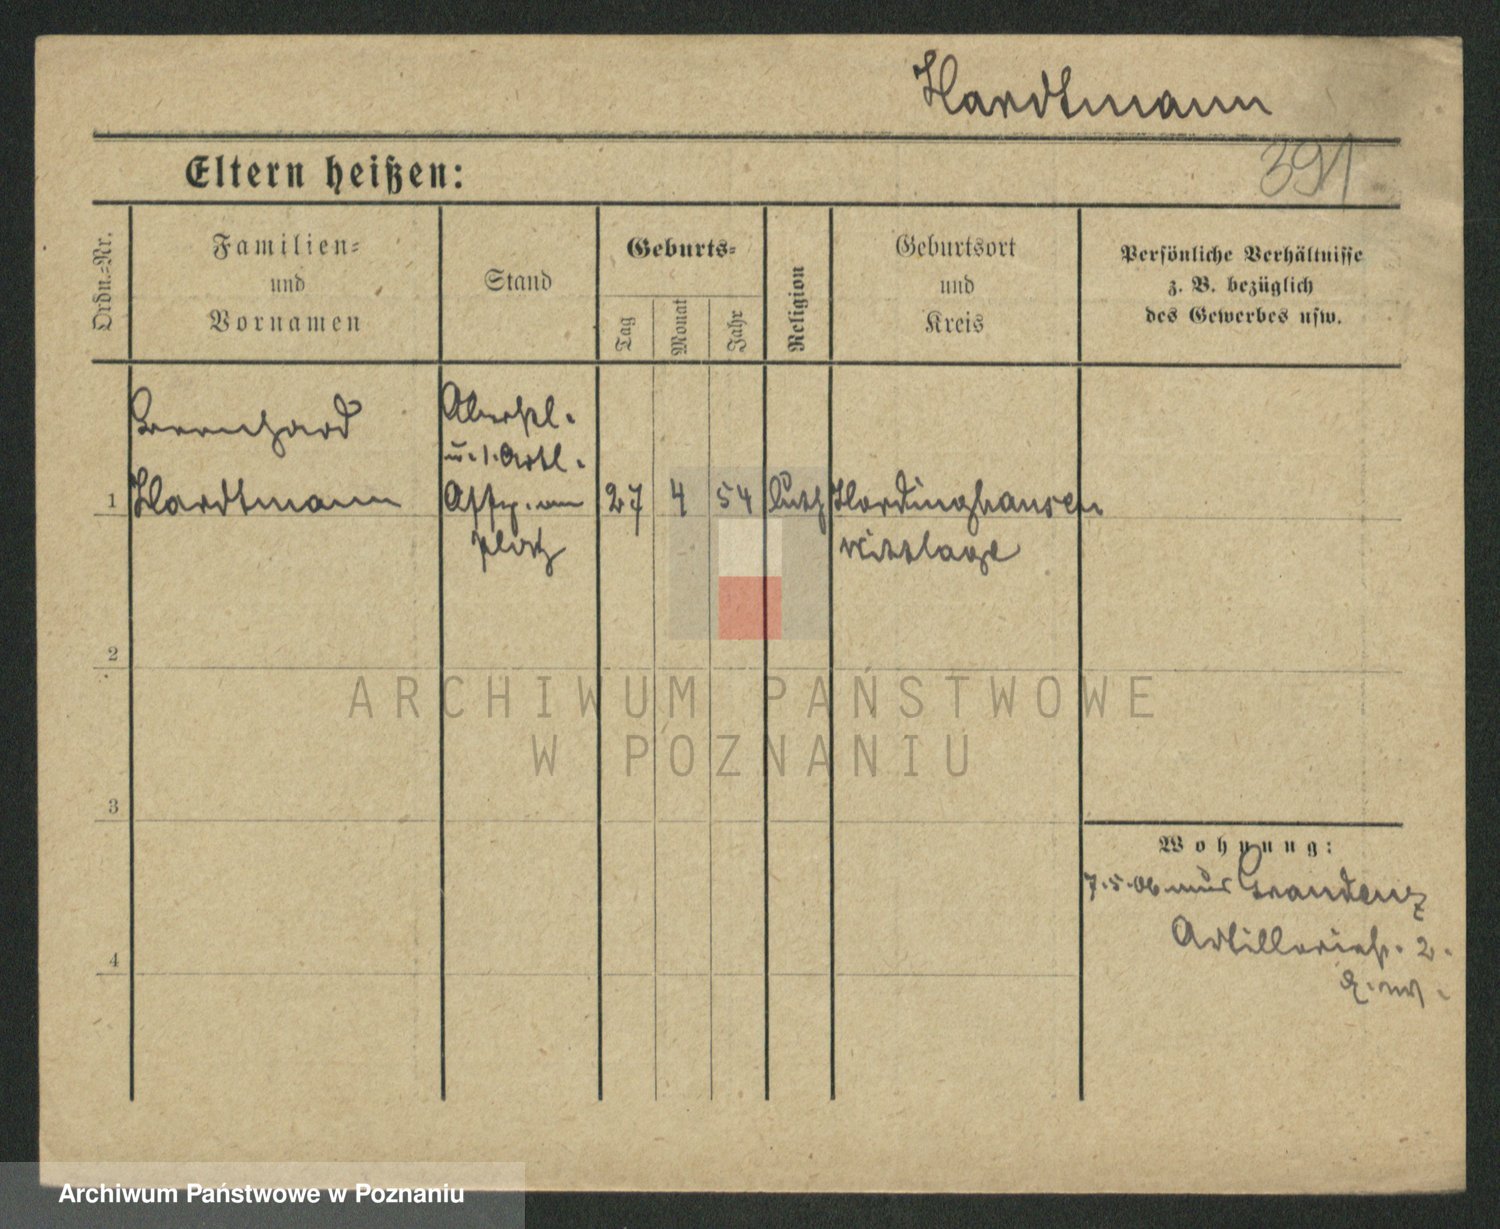 Hardtmann
391
Eltern heißen:
Ordn.-Nr.
Familien-
und
Vornamen
Stand
Geburts-
Tag
Monat
Jahr
Religion
Geburtsort
und
Kreis
Persönliche Verhältnisse
z. B. bezüglich
des Gewerbes usw.
Bernhard
Hardtmann
Oberstl.
u. 1. Artl.
Offz. vom
Platz
1
27
4
54
luth
Hördinghausen
Wittlage
2
3
4
ARCHIWUM PAŃSTWOWE
W POZNANIU
Wohnung:
7.5.06 nach Graudenz
Artilleriestr. 2.
Archiwum Państwowe w Poznaniu